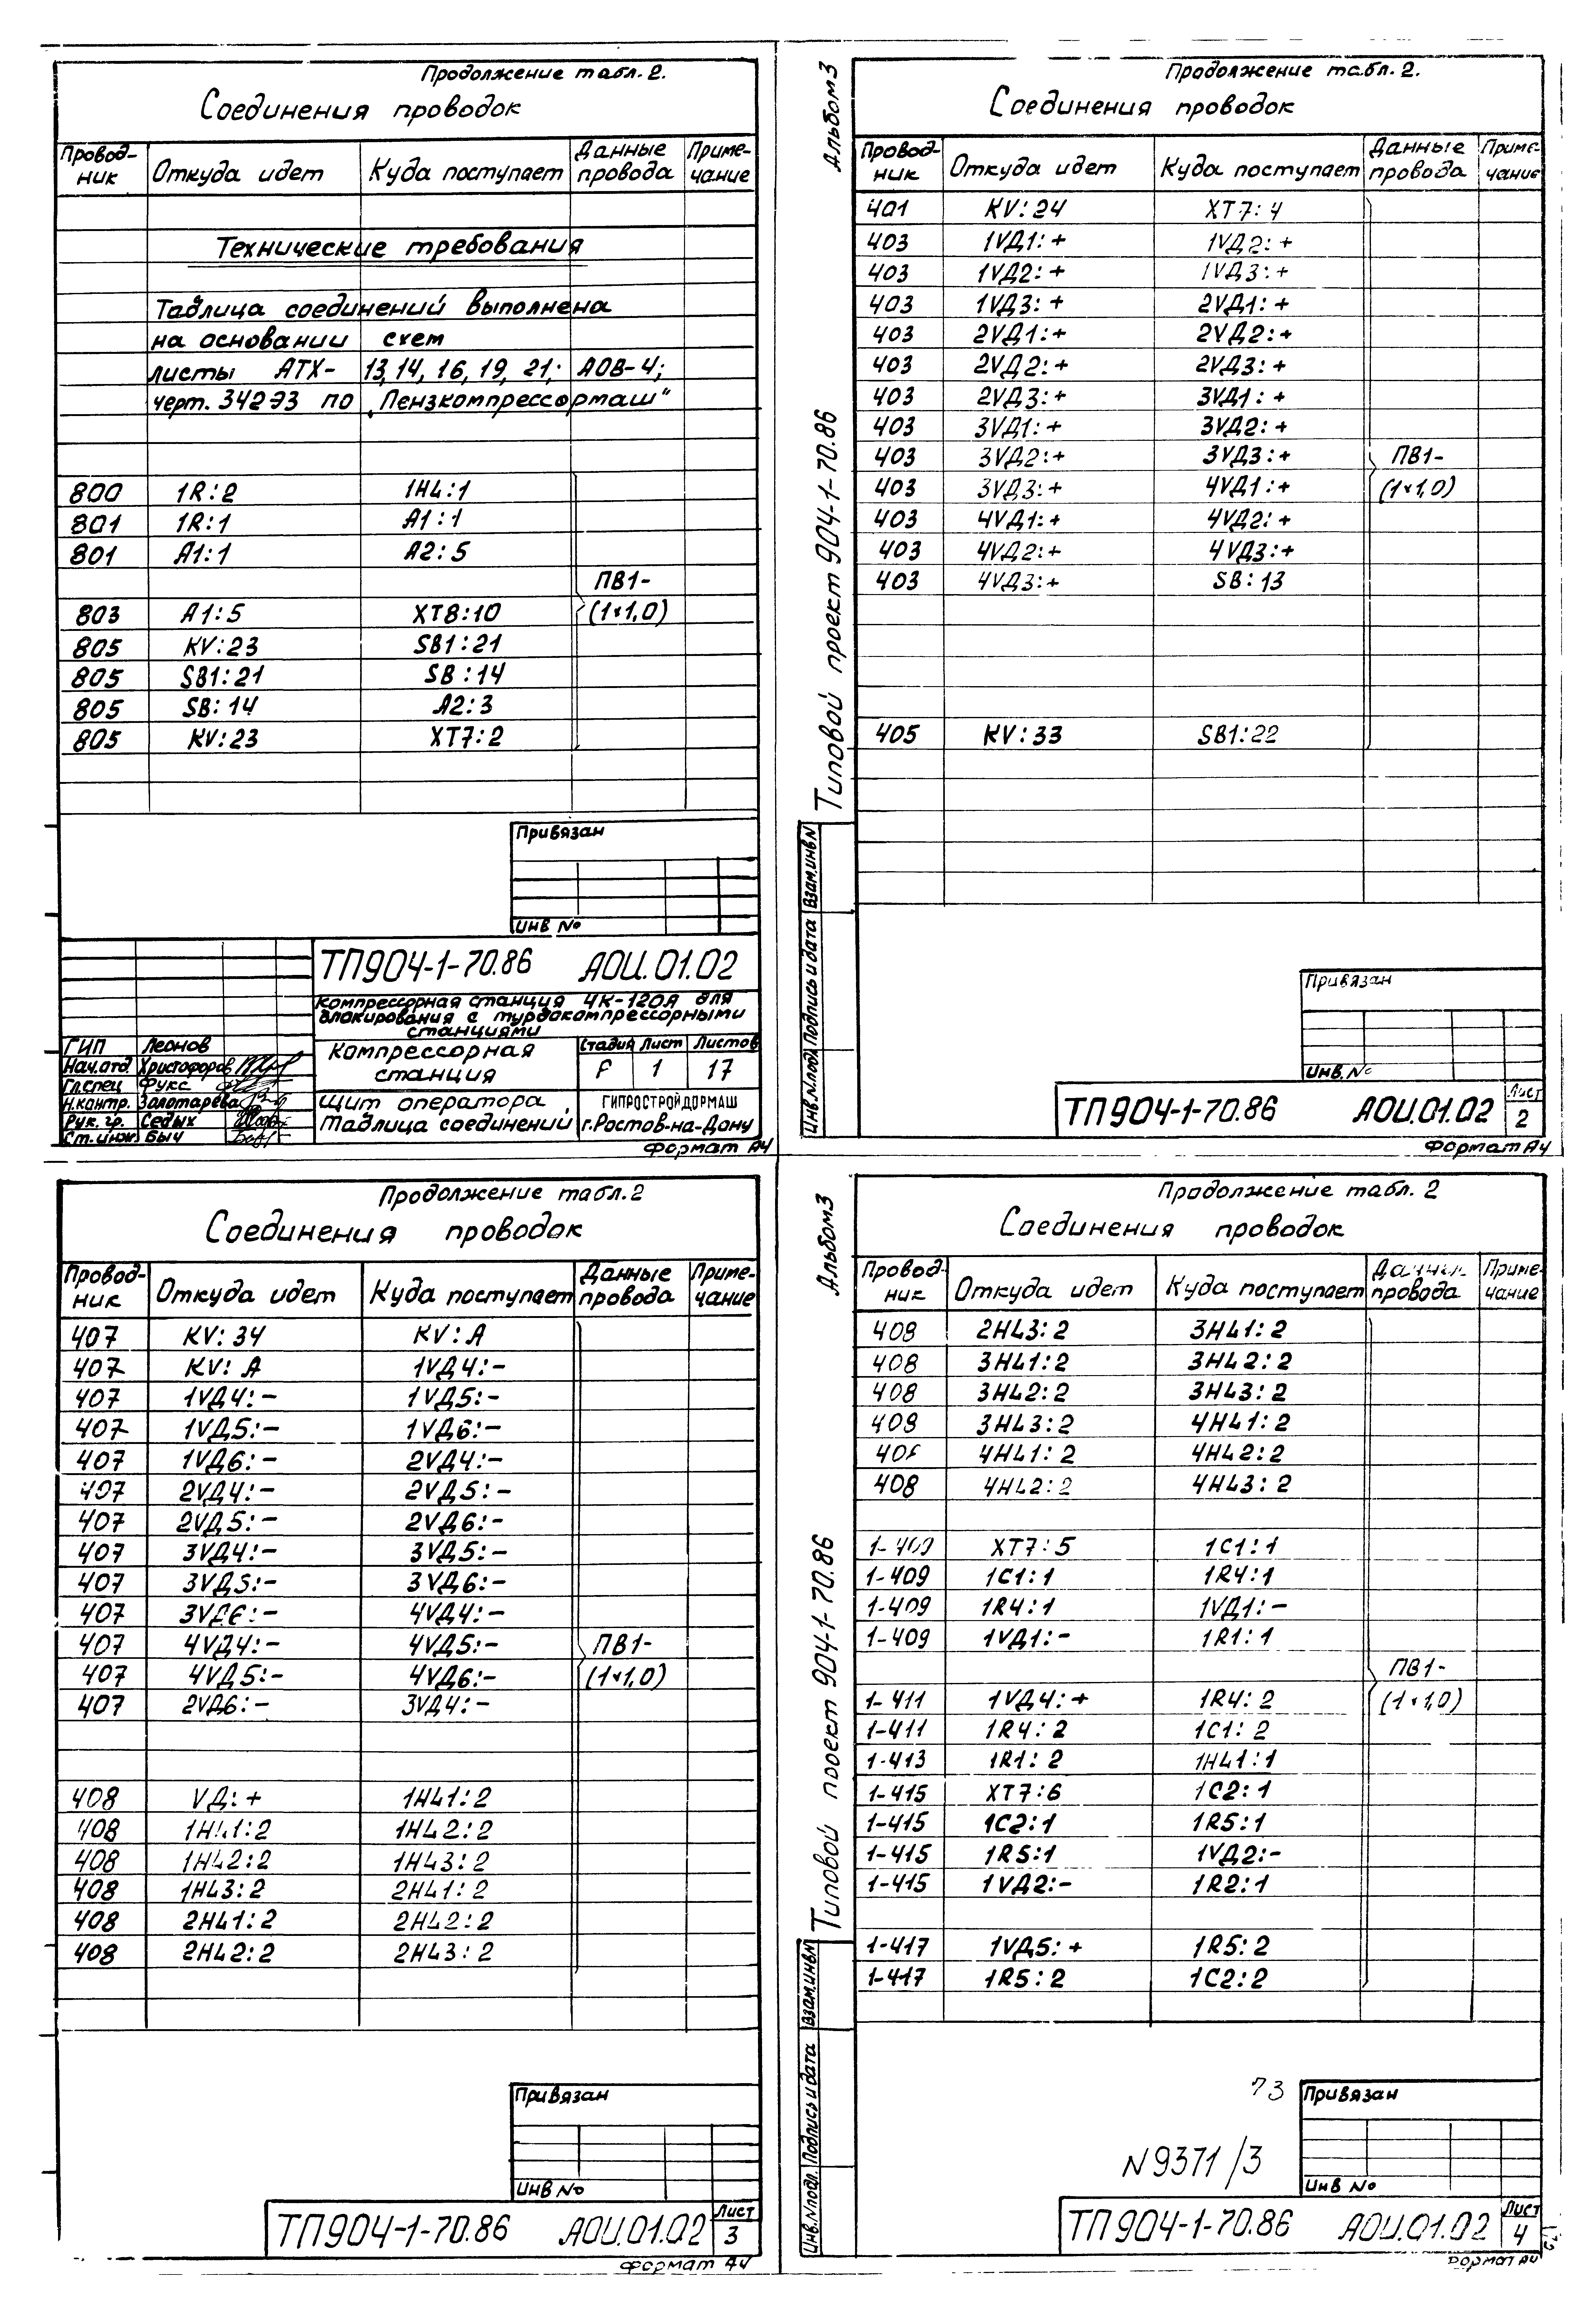 Продолжение табл. 2.
Соединения проводок
Провод-ник Откуда идет Куда поступает Данные провода Приме-чание
Технические требования
Таблица соединений выполнена
на основании схем
листы АТХ- 13, 14, 16, 19, 21; АОВ-4;
черт. 342ЭЗ по „Пензкомпрессормаш"
800 1R:2 1HL:1
801 1R:1 A1:1
801 A1:1 A2:5
ПВ1-
803 A1:5 XT8:10 (1×1,0)
805 KV:23 SB1:21
805 SB1:21 SB:14
805 SB:14 A2:3
805 KV:23 XT7:2
Привязан
Инв №
ТП904-1-70.86 АОИ.01.02
Компрессорная станция 4К-120А для
блокирования с турбокомпрессорными
станциями
ГИП Леонов
Нач.отд. Христофоров
Гл.спец Фукс
Н.контр. Золотарева
Рук. гр. Седых
Ст.инж. Быч
Компрессорная
станция
Стадия Лист Листов
Р 1 17
Щит оператора.
Таблица соединений
ГИПРОСТРОЙДОРМАШ
г.Ростов-на-Дону
Формат А4
Альбом 3
Типовой проект 904-1-70.86
Продолжение табл. 2.
Соединения проводок
Провод-ник Откуда идет Куда поступает Данные провода Приме-чание
401 KV:24 XT7:4
403 1VД1:+ 1VД2:+
403 1VД2:+ 1VД3:+
403 1VД3:+ 2VД1:+
403 2VД1:+ 2VД2:+
403 2VД2:+ 2VД3:+
403 2VД3:+ 3VД1:+
403 3VД1:+ 3VД2:+
403 3VД2:+ 3VД3:+ ПВ1-
403 3VД3:+ 4VД1:+ (1×1,0)
403 4VД1:+ 4VД2:+
403 4VД2:+ 4VД3:+
403 4VД3:+ SB:13
405 KV:33 SB1:22
Инв.N.подл Подпись и дата Взам.инвN
Привязан
Инв.№
ТП904-1-70.86 АОИ.01.02
Лист
2
Формат А4
Продолжение табл.2
Соединения проводок
Провод-ник Откуда идет Куда поступает Данные провода Приме-чание
407 KV:34 KV:A
407 KV:A 1VД4:-
407 1VД4:- 1VД5:-
407 1VД5:- 1VД6:-
407 1VД6:- 2VД4:-
407 2VД4:- 2VД5:-
407 2VД5:- 2VД6:-
407 3VД4:- 3VД5:-
407 3VД5:- 3VД6:-
407 3VД6:- 4VД4:-
407 4VД4:- 4VД5:- ПВ1-
407 4VД5:- 4VД6:- (1×1,0)
407 2VД6:- 3VД4:-
408 VД:+ 1HL1:2
408 1HL1:2 1HL2:2
408 1HL2:2 1HL3:2
408 1HL3:2 2HL1:2
408 2HL1:2 2HL2:2
408 2HL2:2 2HL3:2
Привязан
Инв №
ТП904-1-70.86 АОИ.01.02
Лист
3
Формат А4
Альбом 3
Типовой проект 904-1-70.86
Продолжение табл. 2
Соединения проводок
Провод-ник Откуда идет Куда поступает Данные провода Приме-чание
408 2HL3:2 3HL1:2
408 3HL1:2 3HL2:2
408 3HL2:2 3HL3:2
408 3HL3:2 4HL1:2
408 4HL1:2 4HL2:2
408 4HL2:2 4HL3:2
1-409 XT7:5 1C1:1
1-409 1C1:1 1R4:1
1-409 1R4:1 1VД1:-
1-409 1VД1:- 1R1:1
ПВ1-
1-411 1VД4:+ 1R4:2 (1×1,0)
1-411 1R4:2 1C1:2
1-413 1R1:2 1HL1:1
1-415 XT7:6 1C2:1
1-415 1C2:1 1R5:1
1-415 1R5:1 1VД2:-
1-415 1VД2:- 1R2:1
1-417 1VД5:+ 1R5:2
1-417 1R5:2 1C2:2
Инв.Nподл. Подпись и дата Взам.инвN
73
N9371/3
Привязан
Инв №
ТП904-1-70.86 АОИ.01.02
Лист
4
Формат А4